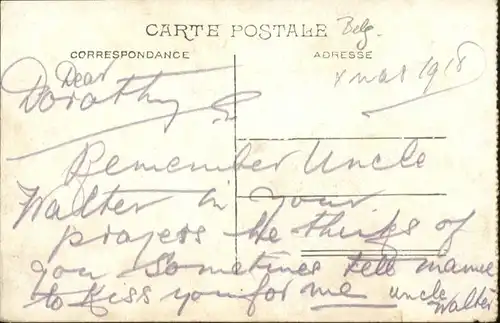 CARTE POSTALE
Belg.
CORRESPONDANCE
ADRESSE
Xmas 1918
Dear
Dorothy
Remember Uncle
Walter in your
prayers He thinks of
you sometimes tell
to kiss you for me uncle
Walter